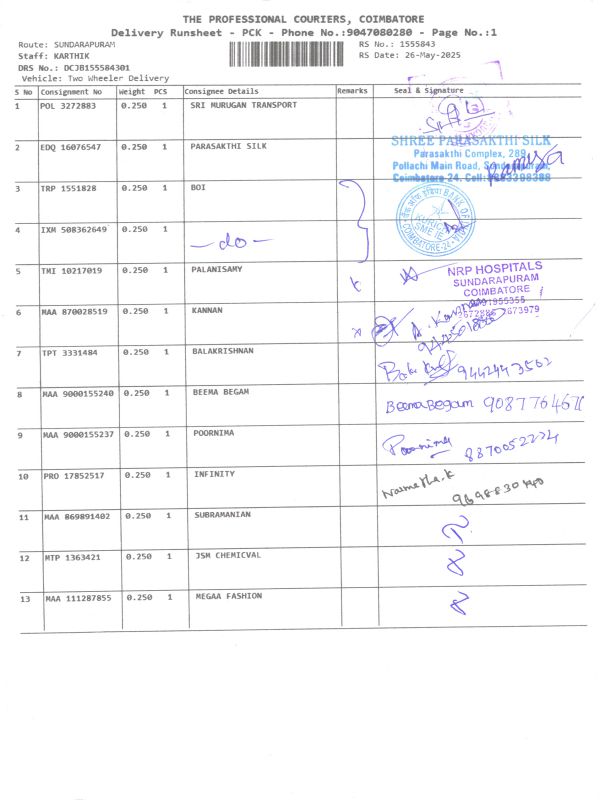 THE PROFESSIONAL COURIERS, COIMBATORE
Delivery Runsheet - PCK - Phone No.:9047080280 - Page No.:1
Route: SUNDARAPURAM RS No.: 1555843
Staff: KARTHIK RS Date: 26-May-2025
DRS No.: DCJB155584301
Vehicle: Two Wheeler Delivery
S No Consignment No Weight PCS Consignee Details Remarks Seal & Signature
1 POL 3272883 0.250 1 SRI MURUGAN TRANSPORT
2 EDQ 16076547 0.250 1 PARASAKTHI SILK
SHREE PARASAKTHI SILK
Parasakthi Complex, 289,
Pollachi Main Road, Sundarapuram,
Coimbatore-24. Cell:
3 TRP 1551828 0.250 1 BOI
BANK OF
KURICHI
SME IE
COIMBATORE-24
4 IXM 508362649 0.250 1 -do-
5 TMI 10217019 0.250 1 PALANISAMY
NRP HOSPITALS
SUNDARAPURAM
COIMBATORE
6 MAA 870028519 0.250 1 KANNAN
7 TPT 3331484 0.250 1 BALAKRISHNAN 9442443562
8 MAA 9000155240 0.250 1 BEEMA BEGAM BeemaBegam
9 MAA 9000155237 0.250 1 POORNIMA Poornima 8870052224
10 PRO 17852517 0.250 1 INFINITY Namertha.k
11 MAA 869891402 0.250 1 SUBRAMANIAN
12 MTP 1363421 0.250 1 JSM CHEMICVAL
13 MAA 111287855 0.250 1 MEGAA FASHION